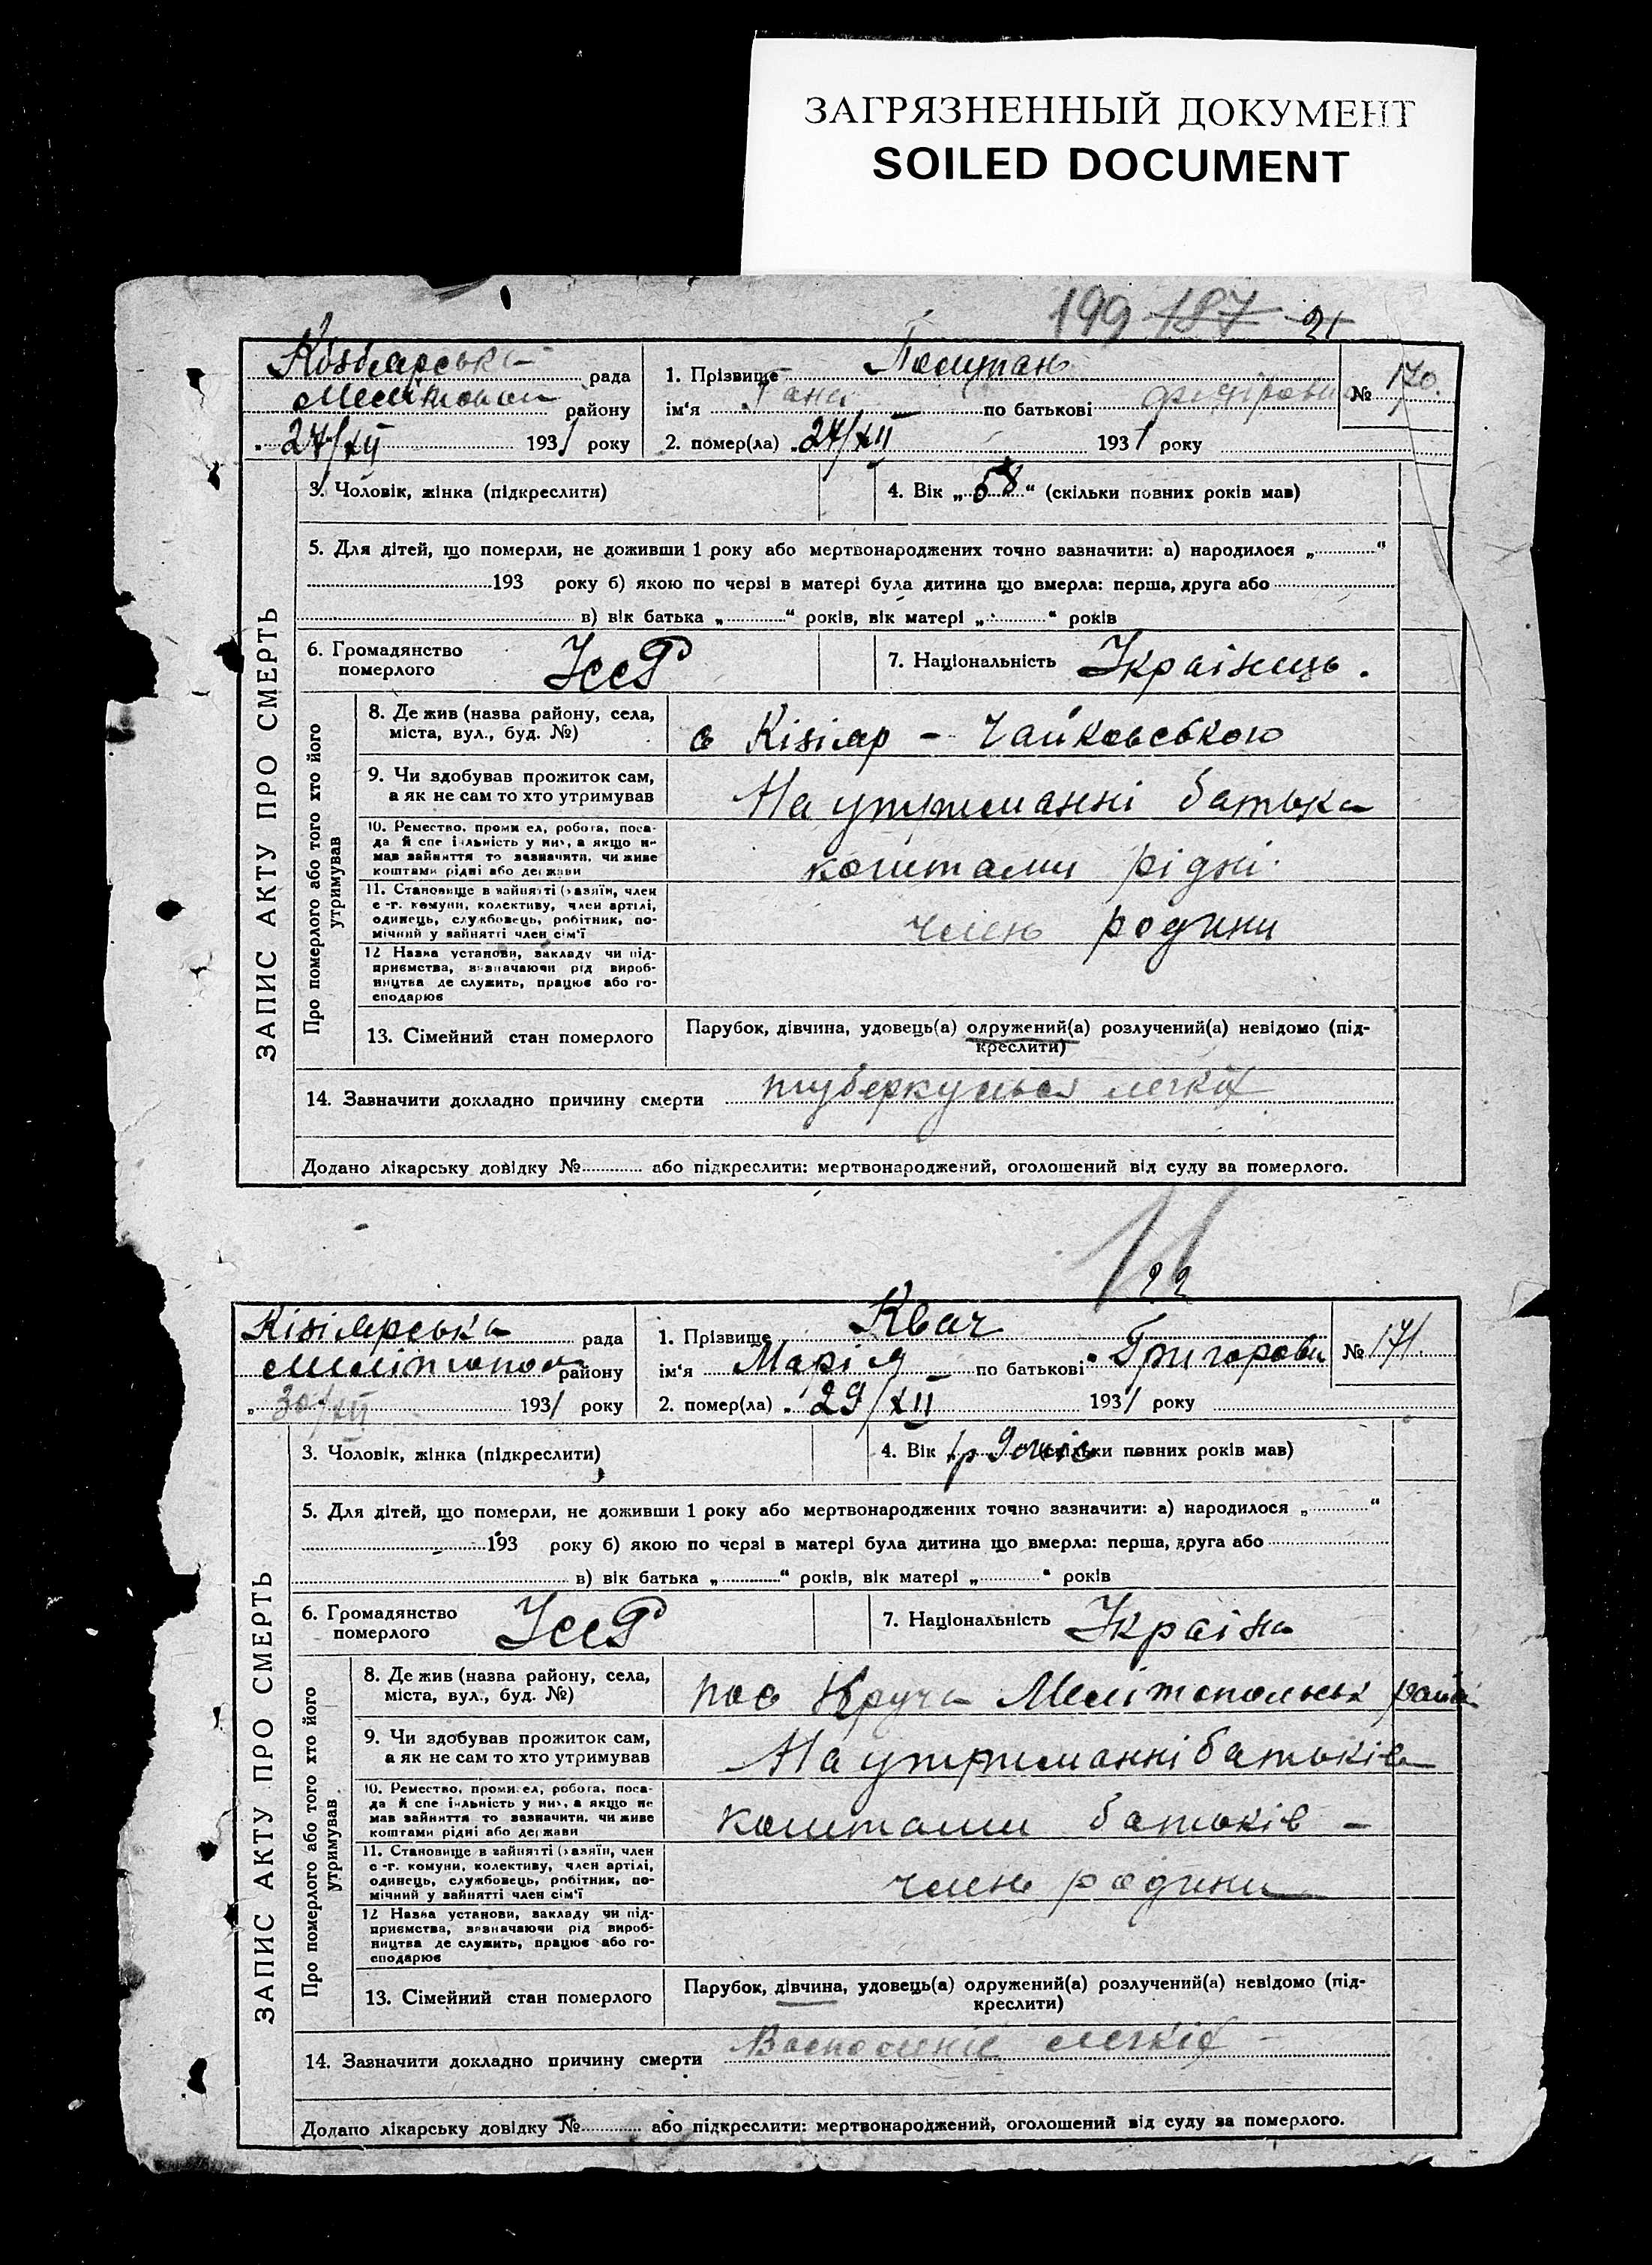 ЗАГРЯЗНЕННЫЙ ДОКУМЕНТ
SOILED DOCUMENT
199 187 21
рада
району
27/XII 1931 року
1. Прізвище
ім‘я по батькові
№ 170.
2. помер(ла) 27/XII 1931 року
ЗАПИС АКТУ ПРО СМЕРТЬ
3. Чоловік, жінка (підкреслити)
4. Вік „58“ (скільки повних років мав)
5. Для дітей, що померли, не доживши 1 року або мертвонароджених точно зазначити: а) народилося „ “
193 року б) якою по черві в матері була дитина що вмерла: перша, друга або
в) вік батька „ “ років, вік матері „ “ років
6. Громадянство
померлого
УССР
7. Національність Українець.
Про померлого або того хто його
утримував
8. Де жив (назва району, села,
міста, вул., буд. №)
с Кізіяр – Чайковською
9. Чи здобував прожиток сам,
а як не сам то хто утримував
На утриманні батька
10. Ремество, промисел, робота, поса-
да й спеціяльність у них, а якщо не
мав зайняття то зазначити, чи живе
коштами рідні або держави
коштами рідні
11. Становище в зайнятті (хазяїн, член
с.-г. комуни, колективу, член артілі,
одинець, службовець, робітник, по-
мічний у зайнятті член сім‘ї
член родини
12 Назва установи, закладу чи під-
приємства, зазначаючи рід вироб-
ництва де служить, працює або го-
сподарює
13. Сімейний стан померлого
Парубок, дівчина, удовець(а) одружений(а) розлучений(а) невідомо (під-
креслити)
14. Зазначити докладно причину смерти туберкульоз легкіх
Додано лікарську довідку № або підкреслити: мертвонароджений, оголошений від суду за померлого.
22
Кізіярська рада
Мелітополь району
30/XII 1931 року
1. Прізвище Квач
ім‘я Марія по батькові Григорови
№ 171.
2. помер(ла) 29/XII 1931 року
ЗАПИС АКТУ ПРО СМЕРТЬ
3. Чоловік, жінка (підкреслити)
4. Вік 1р 9 міс скільки повних років мав)
5. Для дітей, що померли, не доживши 1 року або мертвонароджених точно зазначити: а) народилося „ “
193 року б) якою по черзі в матері була дитина що вмерла: перша, друга або
в) вік батька „ “ років, вік матері „ “ років
6. Громадянство
померлого
УССР
7. Національність Україна
Про померлого або того хто його
утримував
8. Де жив (назва району, села,
міста, вул., буд. №)
пос Круча Мелітопольськ район
9. Чи здобував прожиток сам,
а як не сам то хто утримував
На утриманні батьків
10. Ремество, промисел, робота, поса-
да й спеціяльність у них, а якщо не
мав зайняття то зазначити, чи живе
коштами рідні або держави
коштами батьків –
11. Становище в зайнятті (хазяїн, член
с.-г. комуни, колективу, член артілі,
одинець, службовець, робітник, по-
мічний у зайнятті член сім‘ї
член родини
12 Назва установи, закладу чи під-
приємства, зазначаючи рід вироб-
ництва де служить, працює або го-
сподарює
13. Сімейний стан померлого
Парубок, дівчина, удовець(а) одружений(а) розлучений(а) невідомо (під-
креслити)
14. Зазначити докладно причину смерти Восполеніє легкіх –
Додано лікарську довідку № або підкреслити: мертвонароджений, оголошений від суду за померлого.